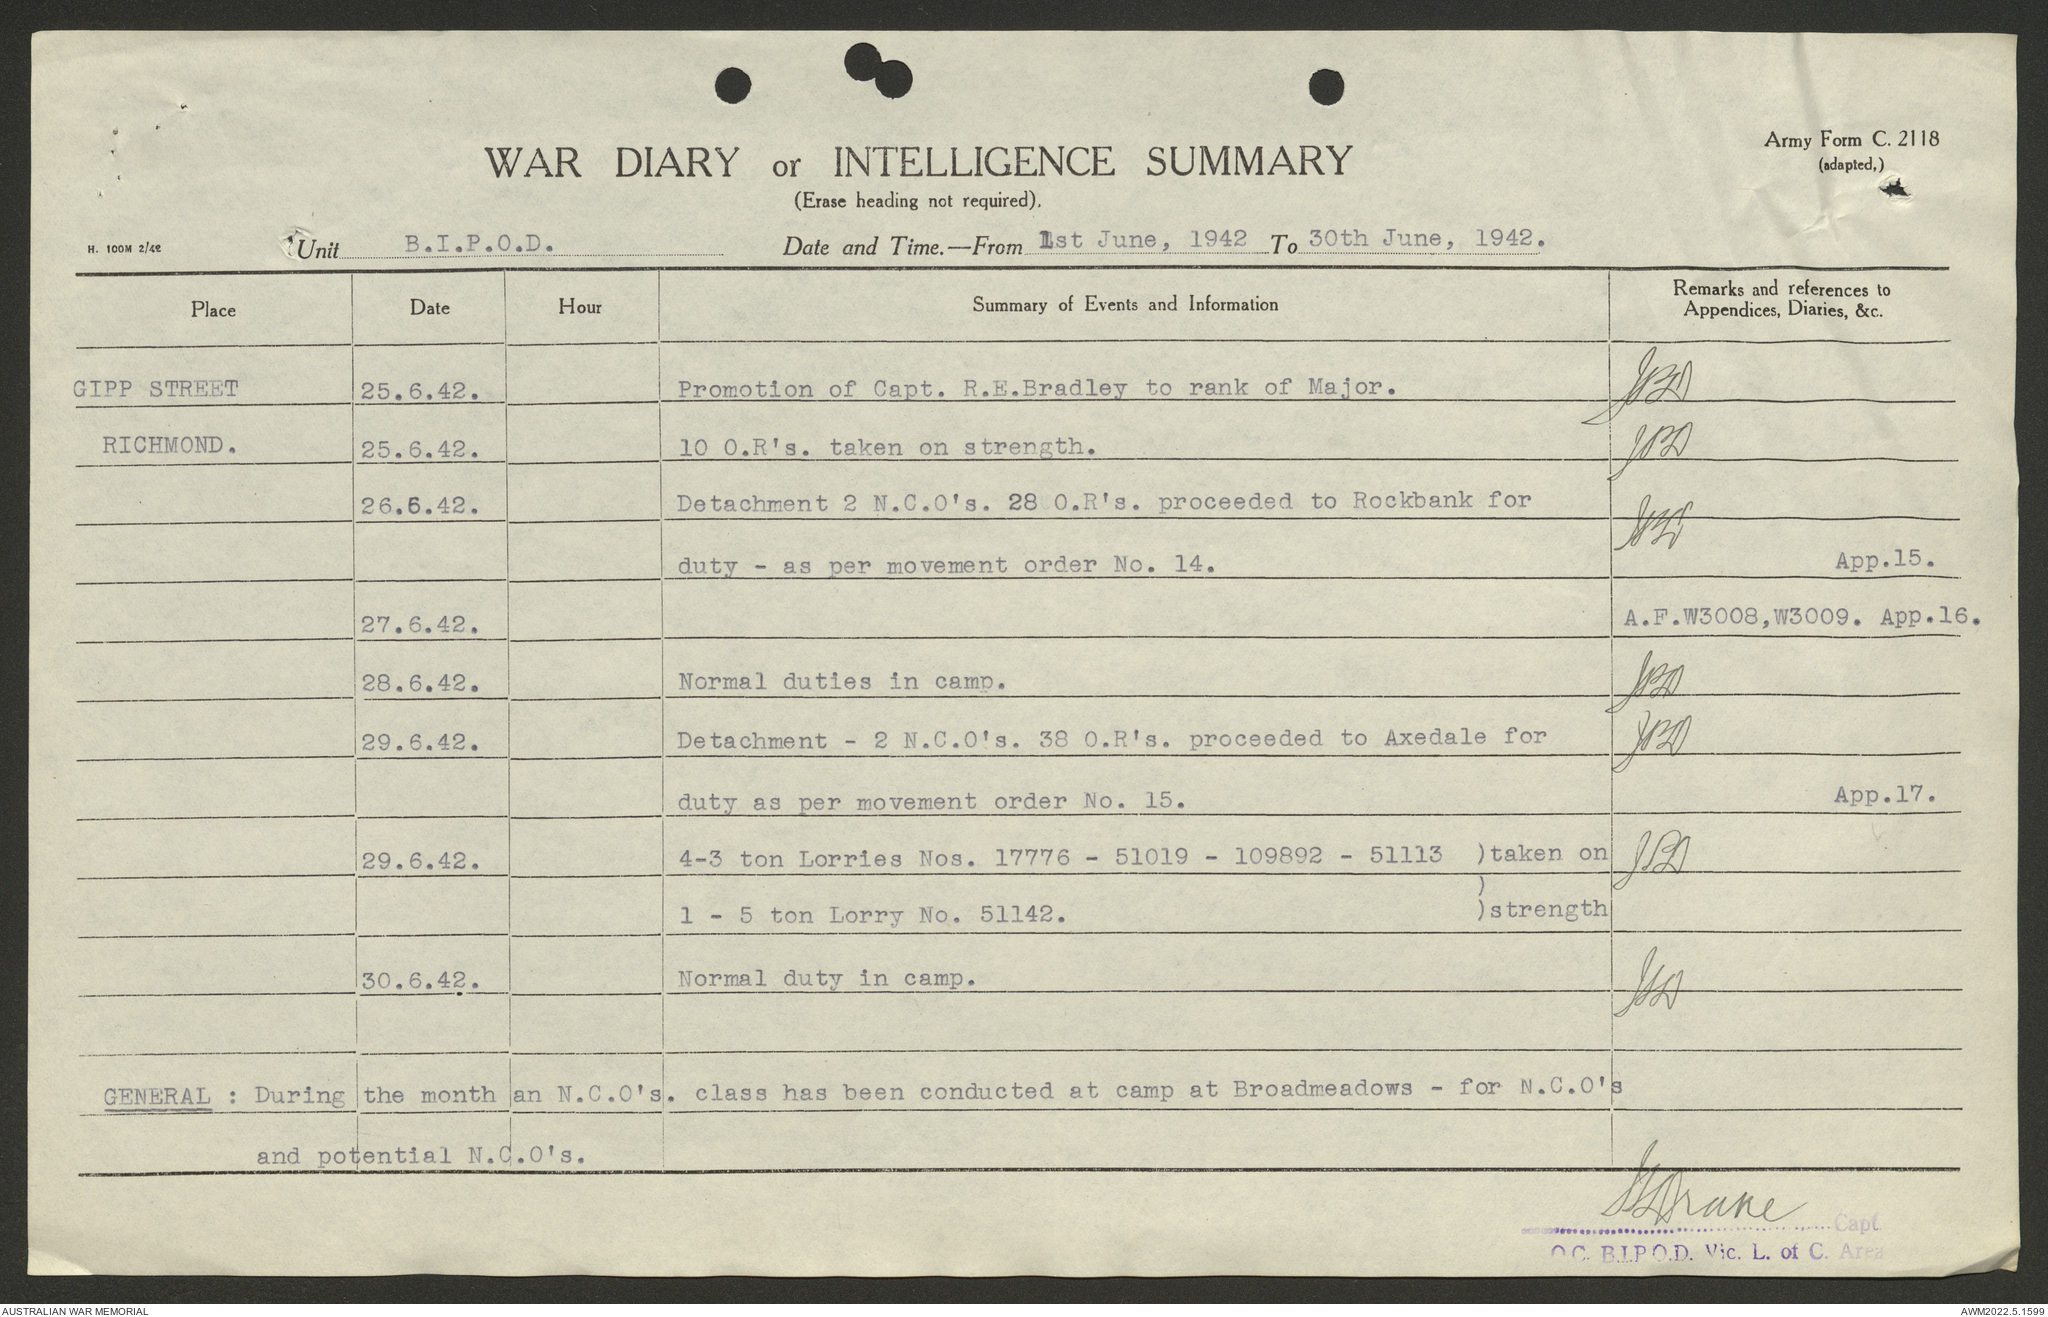 Army Form C. 2118
(adapted,)
WAR DIARY or INTELLIGENCE SUMMARY
(Erase heading not required).
H. 100M 2/42 Unit B.I.P.O.D. Date and Time.—From 1st June, 1942 To 30th June, 1942.
Place Date Hour Summary of Events and Information Remarks and references to
Appendices, Diaries, &c.
GIPP STREET 25.6.42. Promotion of Capt. R.E.Bradley to rank of Major.
RICHMOND. 25.6.42. 10 O.R's. taken on strength.
26.6.42. Detachment 2 N.C.O's. 28 O.R's. proceeded to Rockbank for
duty - as per movement order No. 14. App.15.
27.6.42. A.F.W3008,W3009. App.16.
28.6.42. Normal duties in camp.
29.6.42. Detachment - 2 N.C.O's. 38 O.R's. proceeded to Axedale for
duty as per movement order No. 15. App.17.
29.6.42. 4-3 ton Lorries Nos. 17776 - 51019 - 109892 - 51113 )taken on
)
1 - 5 ton Lorry No. 51142. )strength
30.6.42. Normal duty in camp.
GENERAL : During the month an N.C.O's. class has been conducted at camp at Broadmeadows - for N.C.O's
and potential N.C.O's.
Drake
Capt.
O.C. B.I.P.O.D. Vic. L. of C. Area
AUSTRALIAN WAR MEMORIAL AWM2022.5.1599